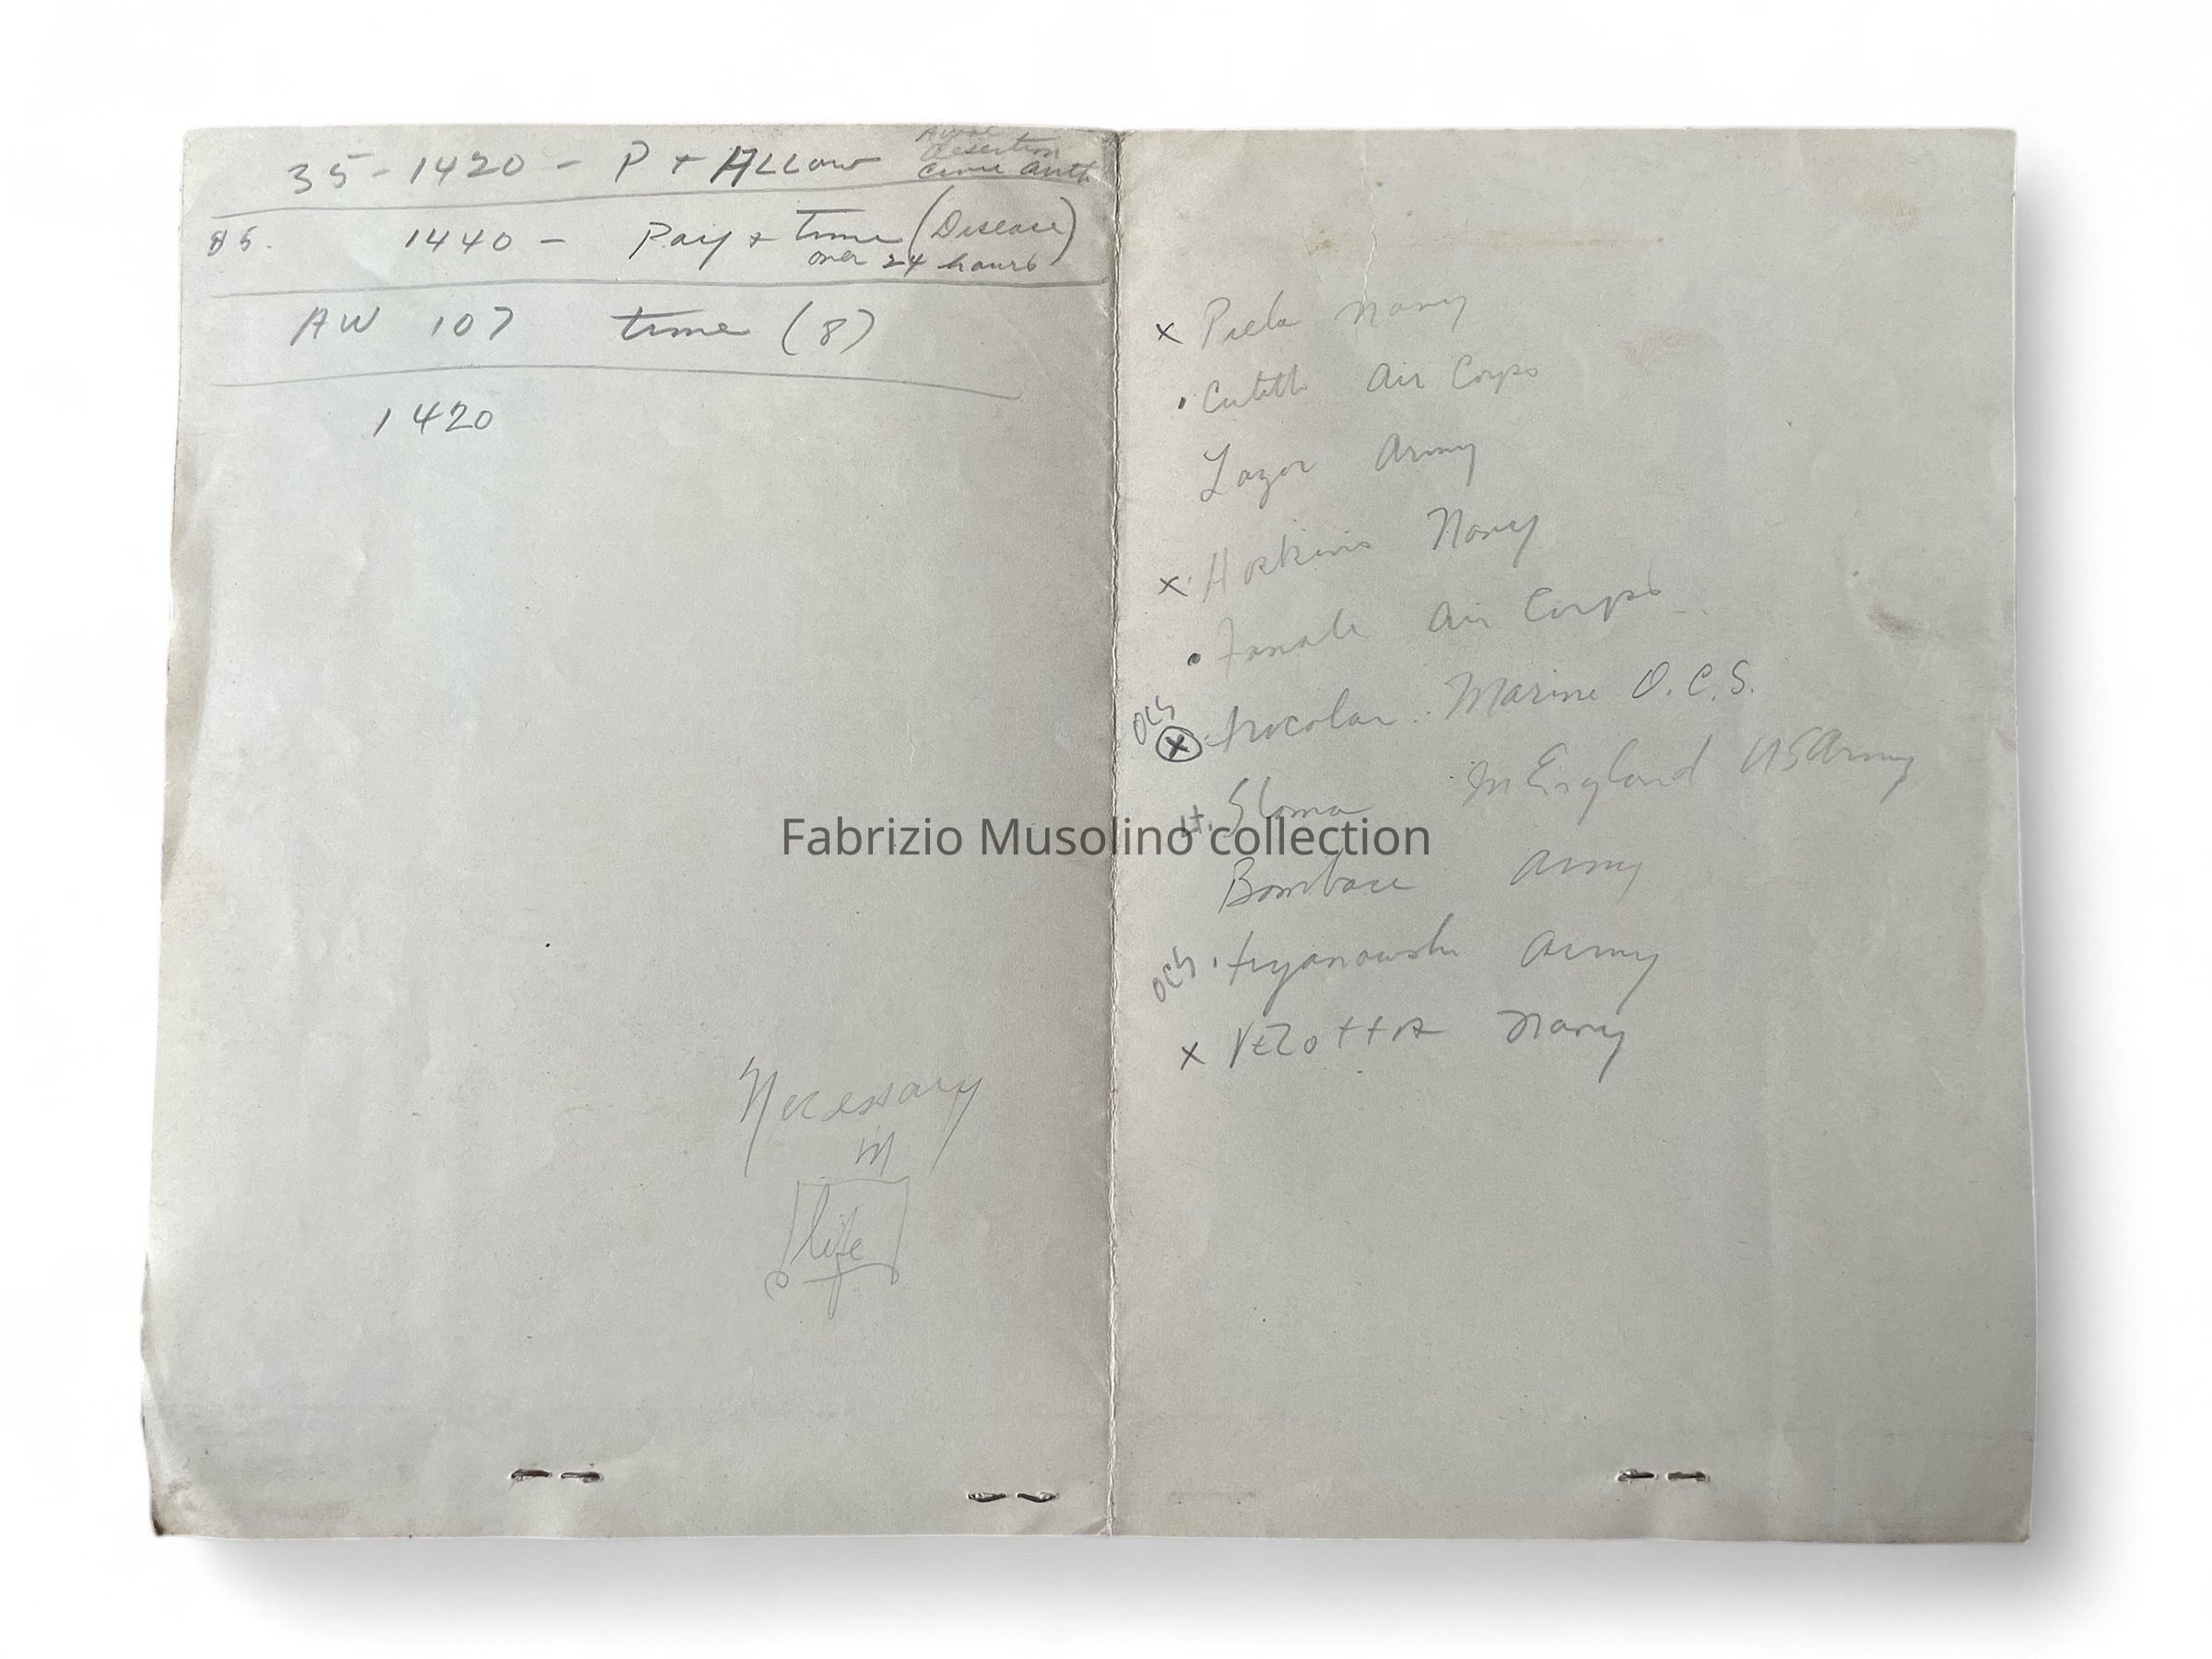 35-1420 - P + ALLow
desertion
civil auth
35. 1440 - Pay + time (Disease)
over 24 hours
AW 107 time (8)
1420
Necessary
in
life
x Piela Navy
Air Corps
Lazor Army
x Hoskins Navy
Air Corps
OCS
Marine O.C.S.
Lt. Sloma In England US Army
Bombace Army
OCS Army
x VEZottA Navy
Fabrizio Musolino collection